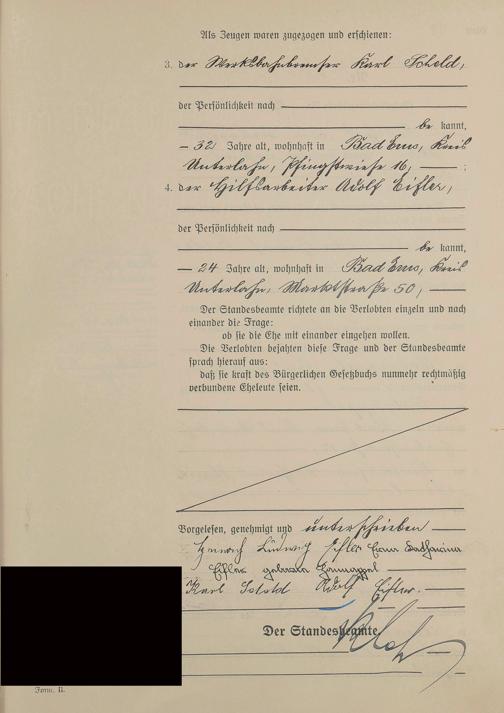 Als Zeugen waren zugezogen und erschienen:
3. der Werksbahnbremser Karl Scheld,
der Persönlichkeit nach
be kannt,
32 Jahre alt, wohnhaft in Bad Ems, Kreis
Unterlahn, Pfingstwiese 16,
4. der Hilfsarbeiter Adolf Eifler,
der Persönlichkeit nach
be kannt,
24 Jahre alt, wohnhaft in Bad Ems, Kreis
Unterlahn, Marktstraße 50,
Der Standesbeamte richtete an die Verlobten einzeln und nach
einander die Frage:
ob sie die Ehe mit einander eingehen wollen.
Die Verlobten bejahten diese Frage und der Standesbeamte
sprach hierauf aus:
daß sie kraft des Bürgerlichen Gesetzbuchs nunmehr rechtmäßig
verbundene Eheleute seien.
Vorgelesen, genehmigt und unterschrieben
Ludwig Eifler Katharina
Eifler geborene
Karl Scheld Adolf Eifler.
Der Standesbeamte
Form. II.